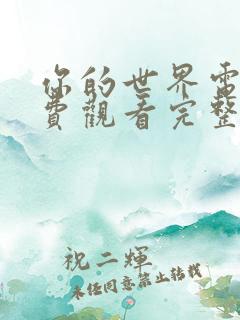 你的世界電
費觀看完整
祝二輝
未任同意禁止转载